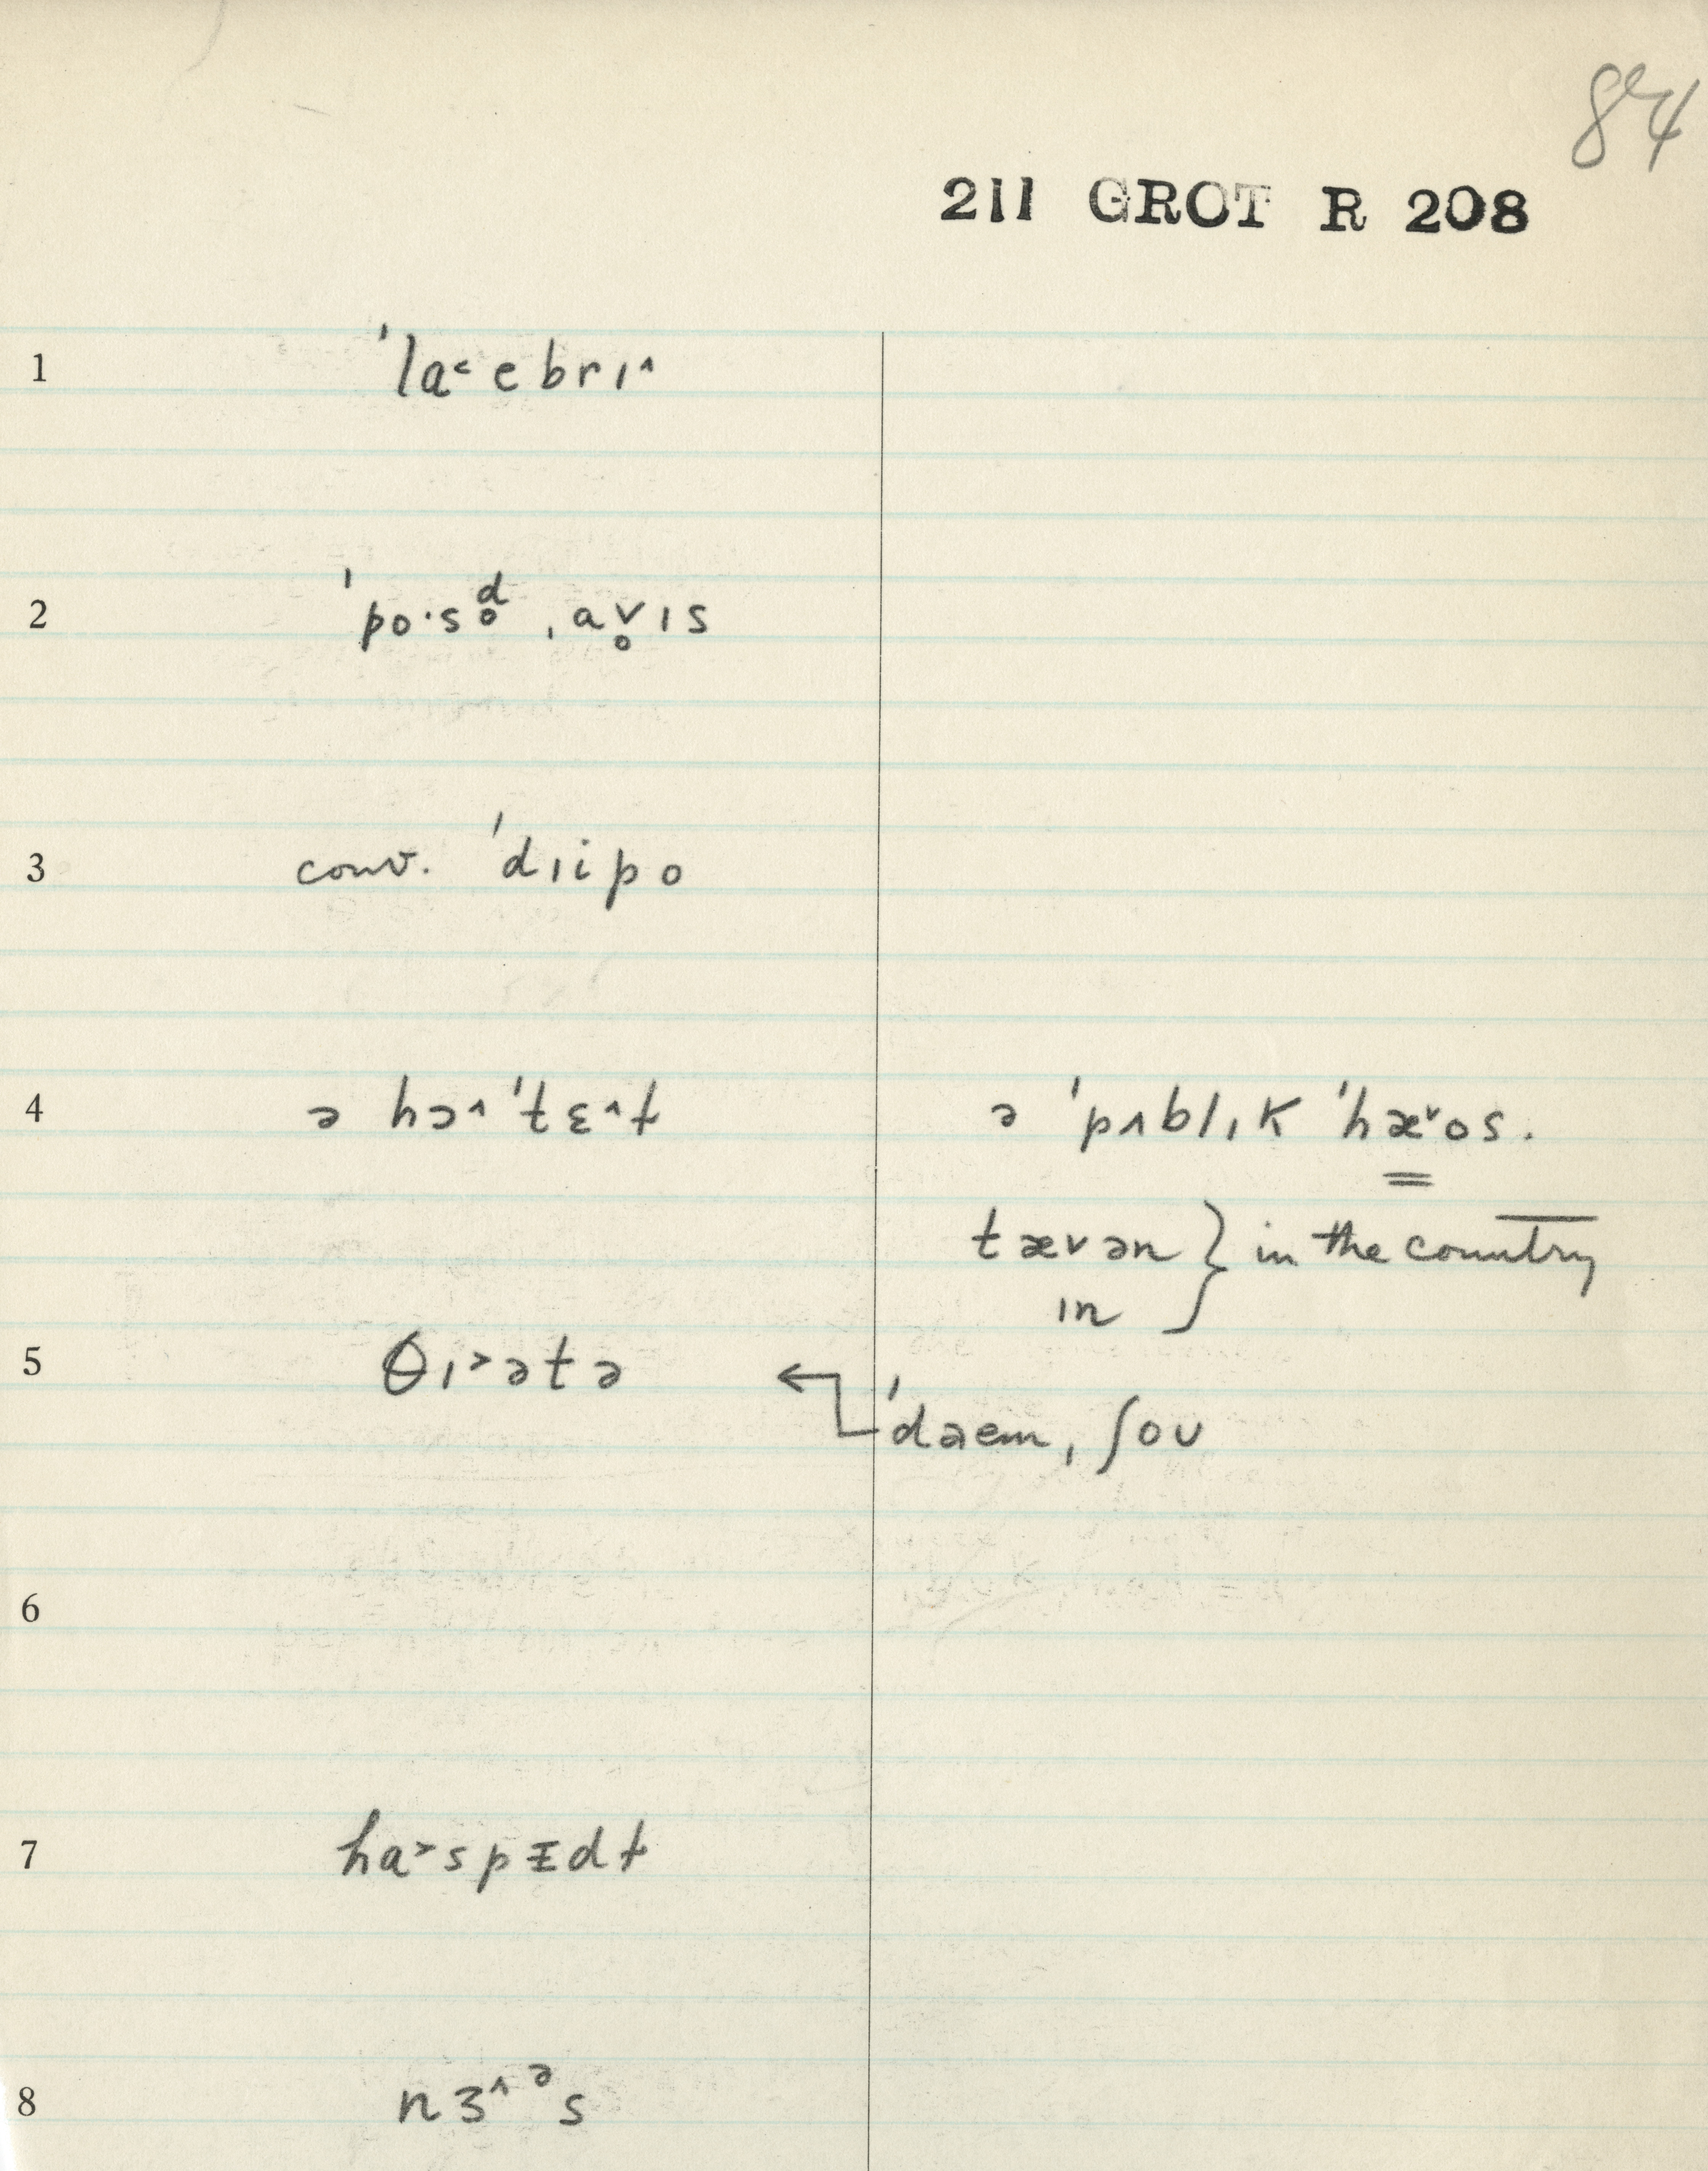 84
211 GROT R 208
1 ˈla˂ebrɪ˄
2 ˈpo·so̥ᵈ ˌav̥ɪs
3 conv. ˈdɪipo
4 ə hɔ˄ˈtɛ˄ɫ ə ˈpʌblˌɪK ˈhæ˅os.
tævən } in the country
ɪn
5 θɪ˃ətə ← ˈdaem, ʃoʊ
6
7 ha˃spɪdɫ
8 nɜ˄ᵊs